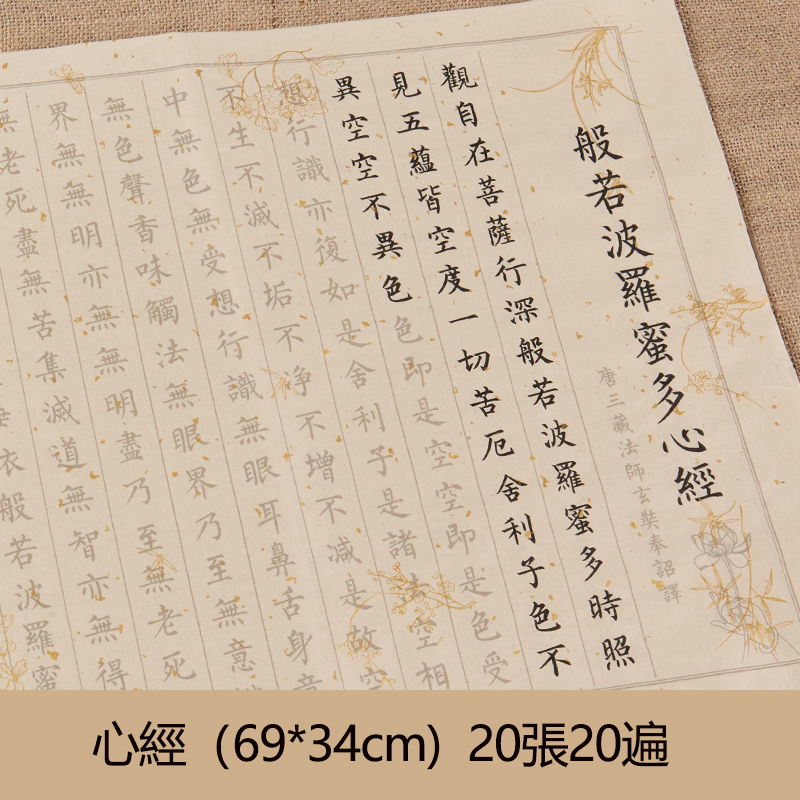 般若波羅蜜多心經
唐三藏法師玄奘奉詔譯
觀自在菩薩行深般若波羅蜜多時照
見五蘊皆空度一切苦厄舍利子色不
異空空不異色色即是空空即是色受
想行識亦復如是舍利子是諸法空相
不生不滅不垢不净不增不減是故空
中無色無受想行識無眼耳鼻舌身意
無色聲香味觸法無眼界乃至無意
界無無明亦無無明盡乃至無老死
無老死盡無苦集滅道無智亦無得
般若波羅蜜
心經（69*34cm）20張20遍